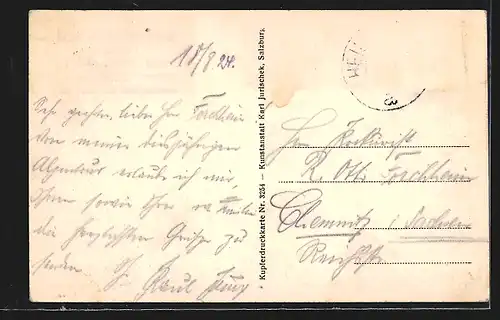 18/8 24.
Sehr geehrter, lieber Herr Forchheim
von meiner diesjährigen
Alpentour erlaube ich mir,
Ihnen sowie Ihrer Familie
die herzlichsten Grüße zu
senden. Ihr
Paul
Kupferdruckkarte Nr. 3254 — Kunstanstalt Karl Jurischek, Salzburg.
Herr
R. Otto Forchheim
Chemnitz i. Sachsen